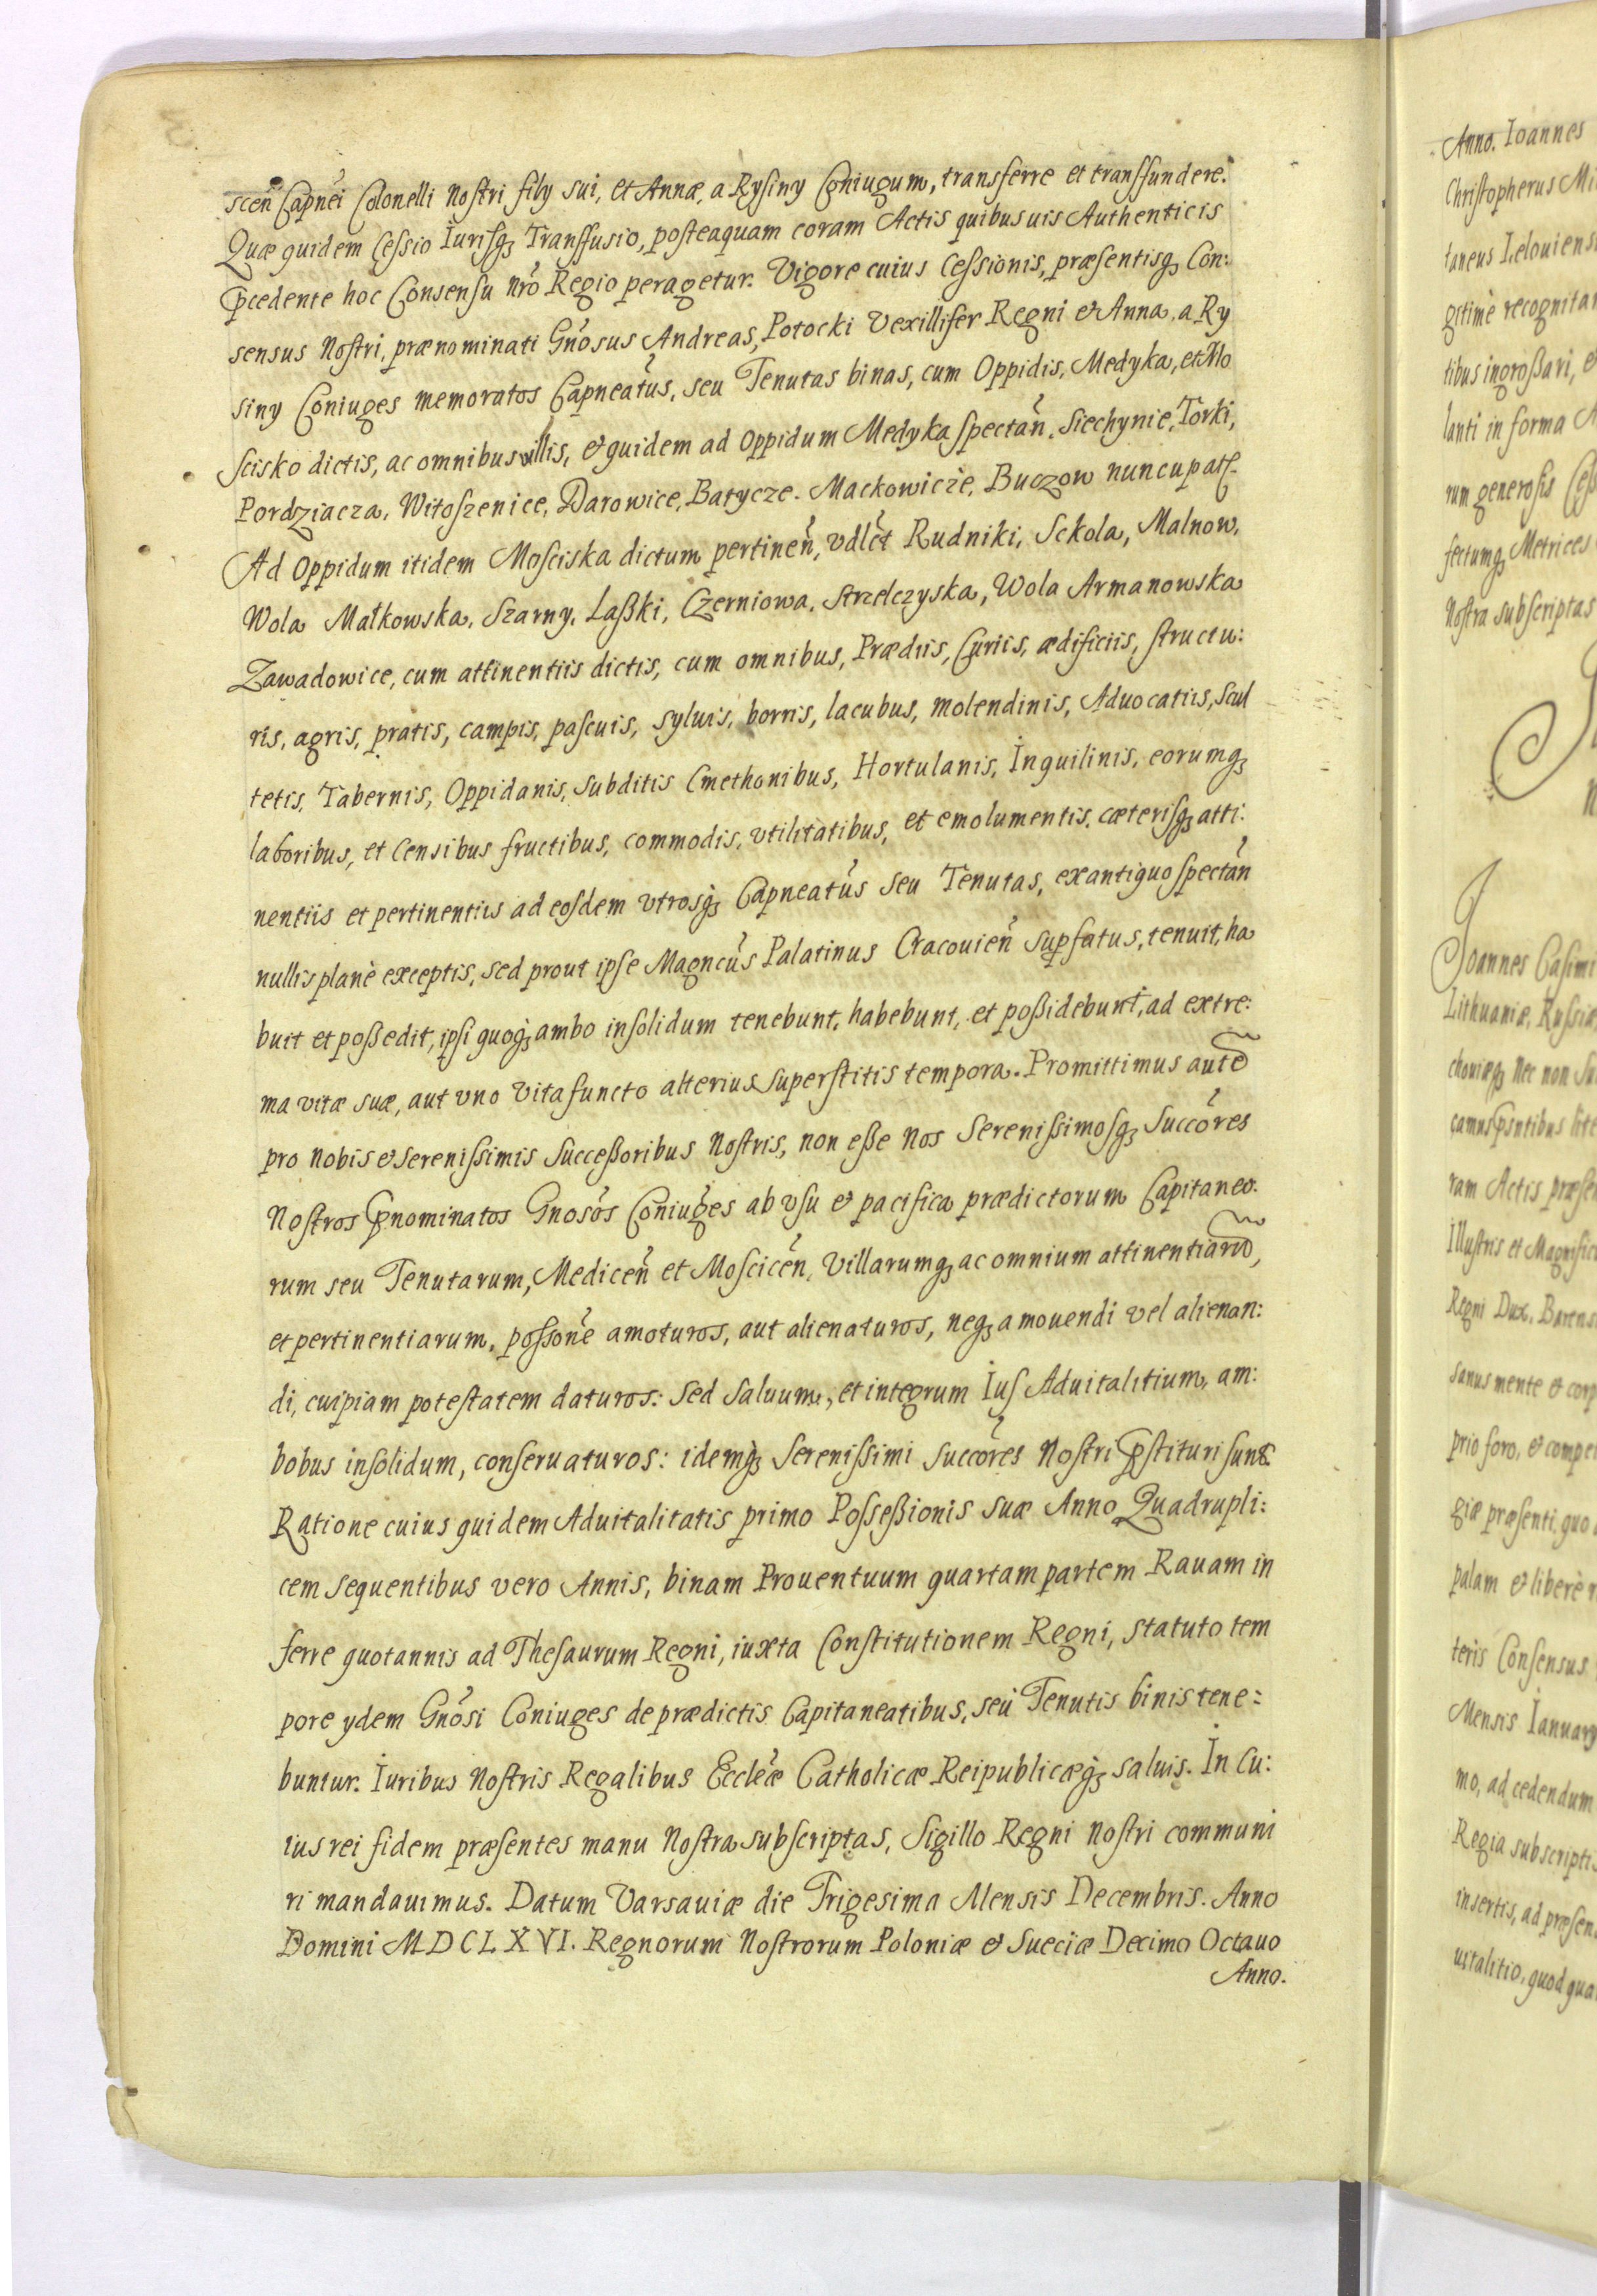 scen̄ Capnei Colonelli Nostri filÿ sui, et Annæ a Rysiny Coniugum, transferre et transfundere.
Quæ quidem Cessio Iurisq₃ Transfusio, posteaquam coram Actis quibusuis Authenticis
Pcedente hoc Consensu nrõ Regio peragetur. Vigore cuius Cessionis, præsentisq₃ Con:
sensus Nostri, prænominati Gnõsus Andreas, Potocki Vexillifer Regni et Anna a Ry
siny Coniuges memoratos Capneatus, seu Tenutas binas, cum Oppidis, Medyka, et Mo
scisko dictis, ac omnibus villis, et quidem ad Oppidum Medyka spectan̄. Siechynie, Torki,
Pordziacza, Witoszenice, Darowice, Batycze. Mackowicże, Buczow nuncupat.
Ad Oppidum itidem Mosciska dictum pertinen̄, vdlct Rudniki, Sckola, Malnow,
Wola Małkowska, Szarny, Laßki, Czerniowa, Strzelczyska, Wola Armanowska
Zawadowice, cum attinentiis dictis, cum omnibus, Prædiis, Curiis, ædificiis, structu:
ris, agris, pratis, campis, pascuis, syluis, borris, lacubus, molendinis, Aduocatiis, Scul
tetis, Tabernis, Oppidanis, Subditis Cmethonibus, Hortulanis, Inquilinis, eorumq₃
laboribus, et Censibus fructibus, commodis, vtilitatibus, et emolumentis, cæterisq₃ atti:
nentiis et pertinentiis ad eosdem vtrosq₃ Capneatus seu Tenutas, ex antiquo spectan̄
nullis planè exceptis, sed prout ipse Magncus Palatinus Cracouien̄ supfatus, tenuit, ha
buit et poßedit, ipsi quoq₃ ambo insolidum tenebunt, habebunt, et poßidebunt, ad extre:
ma vitæ suæ, aut vno vita functo alterius superstitis tempora. Promittimus autẽ
pro Nobis et Serenissimis Succeßoribus Nostris, non eße Nos Serenißimosq₃ Succores
Nostros Pnominatos Gnosos Coniuges ab vsu et pacifica prædictorum Capitaneo.
rum seu Tenutarum, Medicen̄ et Moscicen̄, Villarumq₃ ac omnium attinentiarũ,
et pertinentiarum, possone amoturos, aut alienaturos, neq₃ amouendi vel alienan:
di, cuipiam potestatem daturos: Sed Saluum, et integrum Ius Aduitalitium, am:
bobus insolidum, conseruaturos: idemq₃ Serenissimi Succores Nostri Pstituri sunt.
Ratione cuius quidem Aduitalitatis primo Posseßionis suæ Anno Quadrupli:
cem sequentibus vero Annis, binam Prouentuum quartam partem Rauam in
ferre quotannis ad Thesaurum Regni, iuxta Constitutionem Regni, statuto tem
pore ÿdem Gnõsi Coniuges de prædictis Capitaneatibus, seu Tenutis binis tene:
buntur. Iuribus Nostris Regalibus Eccleæ Catholicæ Reipublicæq₃ saluis. In Cu:
ius rei fidem præsentes manu Nostra subscriptas, Sigillo Regni Nostri communi
ri mandauimus. Datum Varsauiæ die Trigesima Mensis Decembris. Anno
Domini MDCLXVI. Regnorum Nostrorum Poloniæ et Sueciæ Decimo Octauo
Anno.
Anno. Ioannes
Christopherus
taneus Lelouiens
gitimè recognitar
tibus ingroßari, e
lanti in forma
rum generosis
fectumq₃ Metrices
Nostra subscriptas
Joannes Casimi
Lithuaniæ, Russiæ
chouiæq₃ Nec non
camus Psntibus lite
ram Actis præse
Illustris et Magnific
Regni Dux, Barens
sanus mente et corp
prio foro, et compe
giæ præsenti, quo
palam et liberè
teris Consensus
Mensis Ianuarÿ
mo, ad cedendum
Regia subscripti
insertis, ad præsen
uitalitio, quod qua